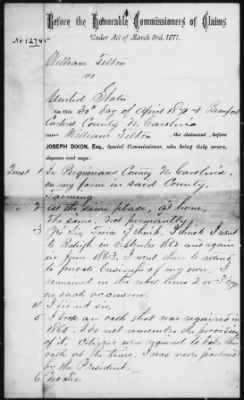 Before the Honorable Commissioners of Claims
Under Act of March 3rd, 1871.
No 12745
William Felton
vs
United States
On this 30th day of April 187 4 Beaufort
Carteret County N. Carolina
came William Felton, the claimant, before
JOSEPH DIXON, Esq., Special Commissioner, who being duly sworn,
deposes and says:
Quest 1 In Perquimans County N. Carolina,
on my farm in said County.
Farming
2 At the same place, at home,
The same. Not permanently
3 Yes Sir, Twice I think. I think I went
to Raleigh in September 1862 and again
in June 1863. I went there to attend
to private business of my own. I
remained in the rebel lines 2 or 3 days
on each occasion.
4 I did not sir.
5 I took an oath that was required in
1865. I do not remember the provisions
of it. Citizens were required to take this
oath at the time. I was never pardoned
by the President.
6 No Sir.